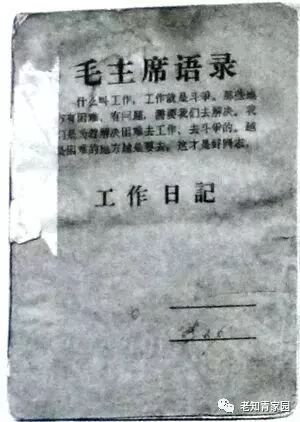 毛主席语录
什么叫工作，工作就是斗争。那些地
方有困难，有问题，需要我们去解决。我
们是为着解决困难去工作、去斗争的。越
是困难的地方越是要去，这才是好同志。
工作日記
老知青家园